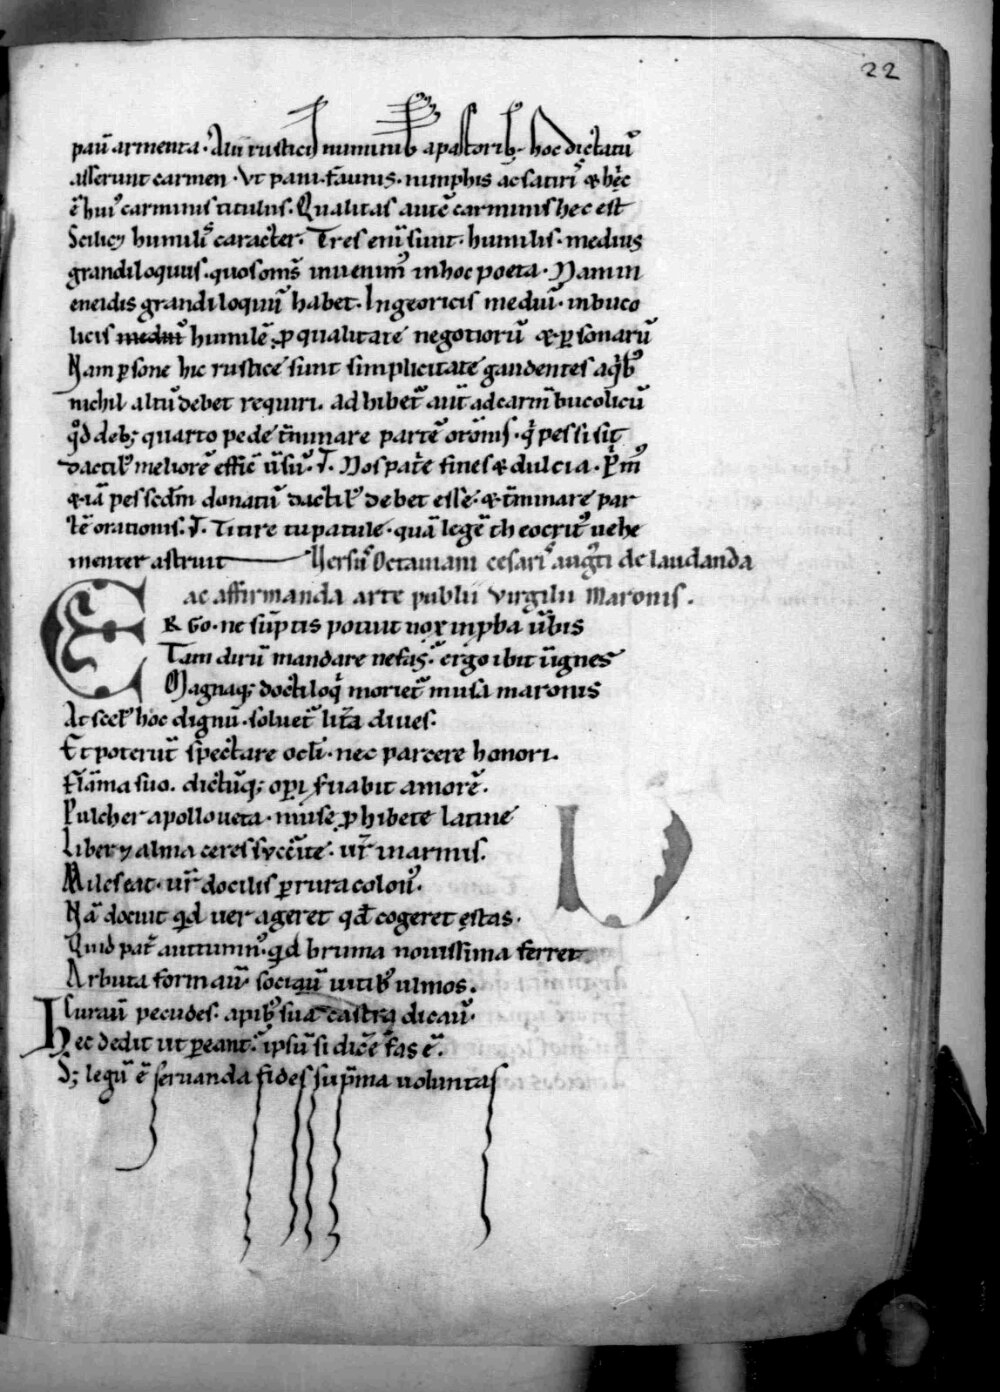 22
pauẽ armenta. Aut rusticis numinib; a pastorib; hoc dictatũ
asserunt carmen. Vt pani. faunis. nimphis ac satiris & hęc
ẽ hui᷒ carminis titulus. Qualitas autẽ carminis hec est
Scilicȝ humilis caracter. Tres eni᷒ sunt. humilis. medius
grandiloquus. quos om̅s inuenim᷒ in hoc poeta. Nam in
eneidis grandiloquũ habet. In georicis mediũ. in buco
licis mediũ humilẽ. ꝓ qualitate negotiorũ & ꝑsonarũ
Nam ꝑsone hic rustice sunt simplicitate gaudentes a q̇b᷒
nichil altũ debet requiri. adhibet᷒ aut̃ ad carm̃ bucolicũ
qd̃ deb; quarto pede t̃minare partẽ orõnis. q̇ pes si sit
dactil᷒ meliorẽ effic̃ u̅sũ. Nos pat̃e fines & dulcia. P̃m᷒
& iã pes scd̃m donatũ dactil᷒ debet esse. & t̃minare par
tẽ orationis. Titire tu patule. quã legẽ theocrit᷒ uehe
menter astruit
Uersus Octauiani cesaris aug᷒ti de laudanda
ac affirmanda arte publii virgilii maronis.
ERGO. ne sup̃tis potuit uox inp̃ba u̅bis
Tam dirũ mandare nefas. ergo ibit ĩ ignes
Magnaq; doctiloq̇ moriet᷒ musa maronis
At scel᷒ hoc dignũ. soluet᷒ litt̃a diues.
Et poterũt spectare ocl̃i. nec parcere honori.
Flãma suo. dictũq; opi ẜuabit amorẽ.
Pulcher apollo ueta. muse ꝓhibete latine
Liber & alma ceres succ̃ite. ur̃ in armis.
Miles eat. ur̃ docilis ꝑ rura colon᷒.
Nã docuit qd̃ uer ageret qd̃ cogeret ęstas.
Quid pat̃ autumn᷒. qd̃ bruma nouissima ferret
Arbuta formauit. sociauit uitib᷒ ulmos.
Curauit pecudes. apib᷒ sua castra dicauit.
Hec dedit ut ꝑeant. ipsũ si dic̃e fas ẽ.
S; legũ ẽ seruanda fides sup̃ma uoluntas
U